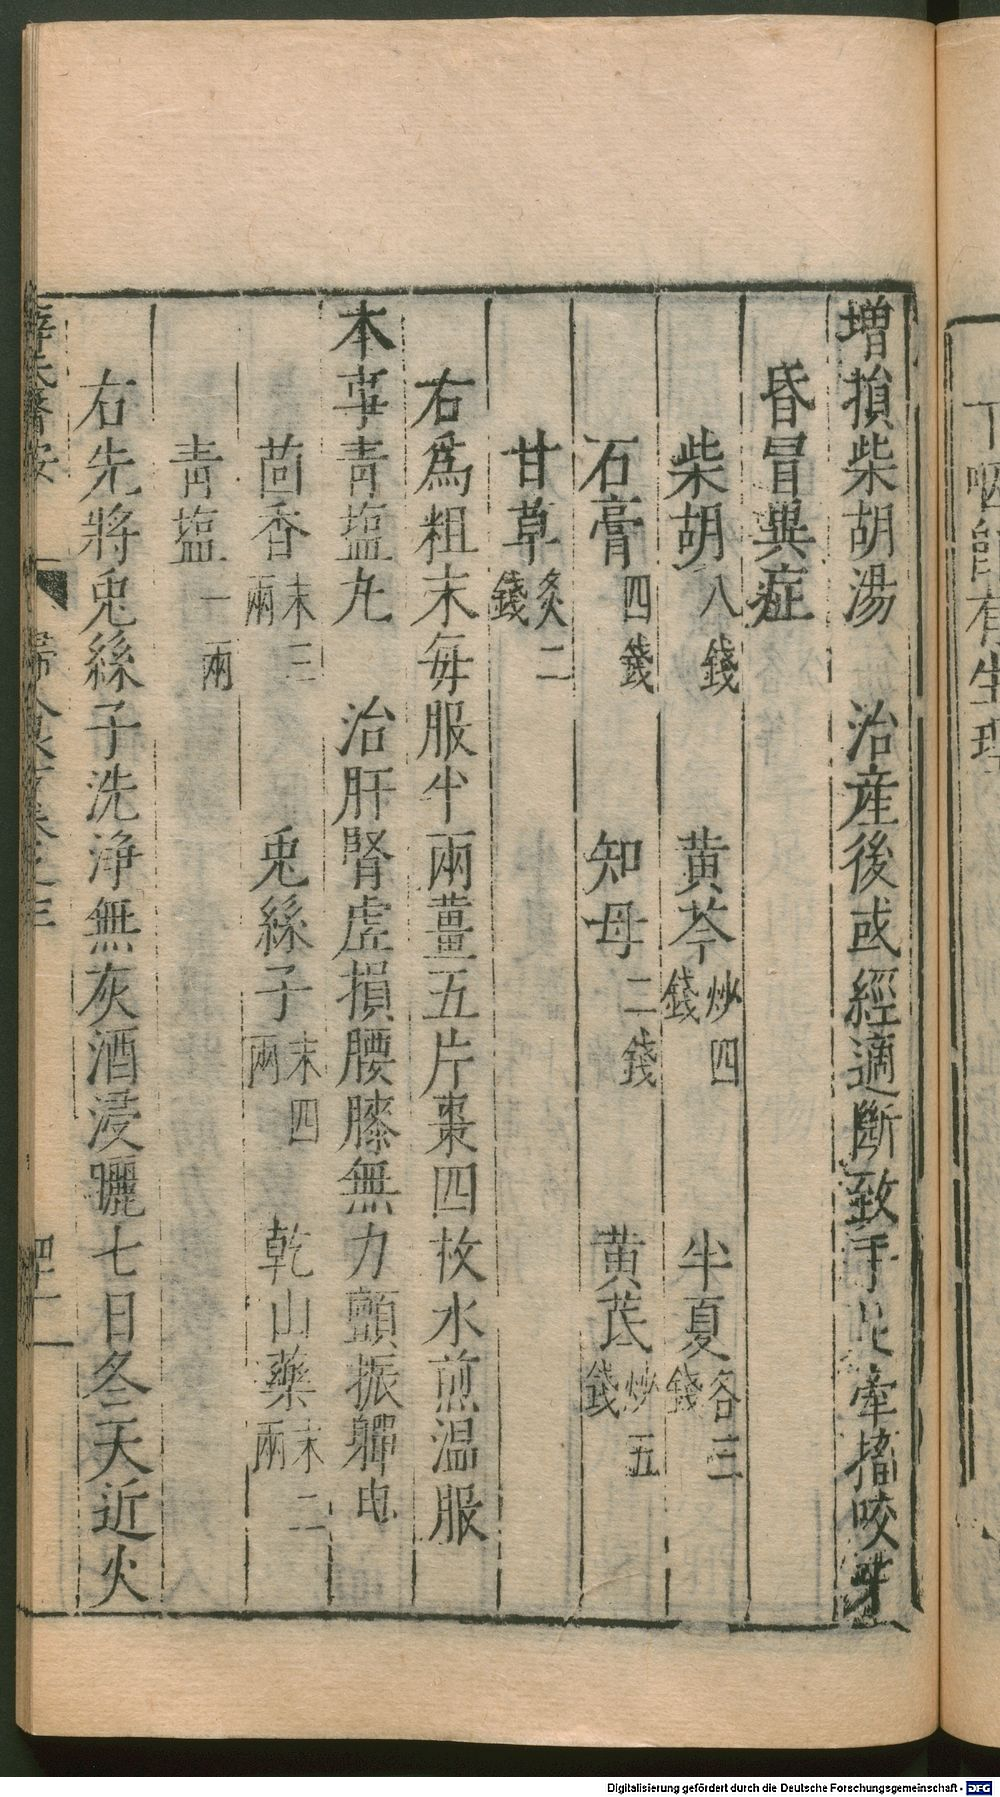 增損柴胡湯　治產後或經適斷致手足牽搐咬牙
昏冒異症
柴胡八錢　黄芩炒四錢　半夏各三錢
石膏四錢　知母二錢　黄茋炒五錢
甘草炙二錢
右爲粗末每服半兩薑五片棗四枚水煎温服
本事靑塩丸　治肝腎虚損腰膝無力顫振軃曳
茴香末三兩　兎絲子末四兩　乾山藥末二兩
靑塩一兩
右先將兎絲子洗净無灰酒浸曬七日冬天近火
薛氏醫案
下吸飲有生理
Digitalisierung gefördert durch die Deutsche Forschungsgemeinschaft - DFG